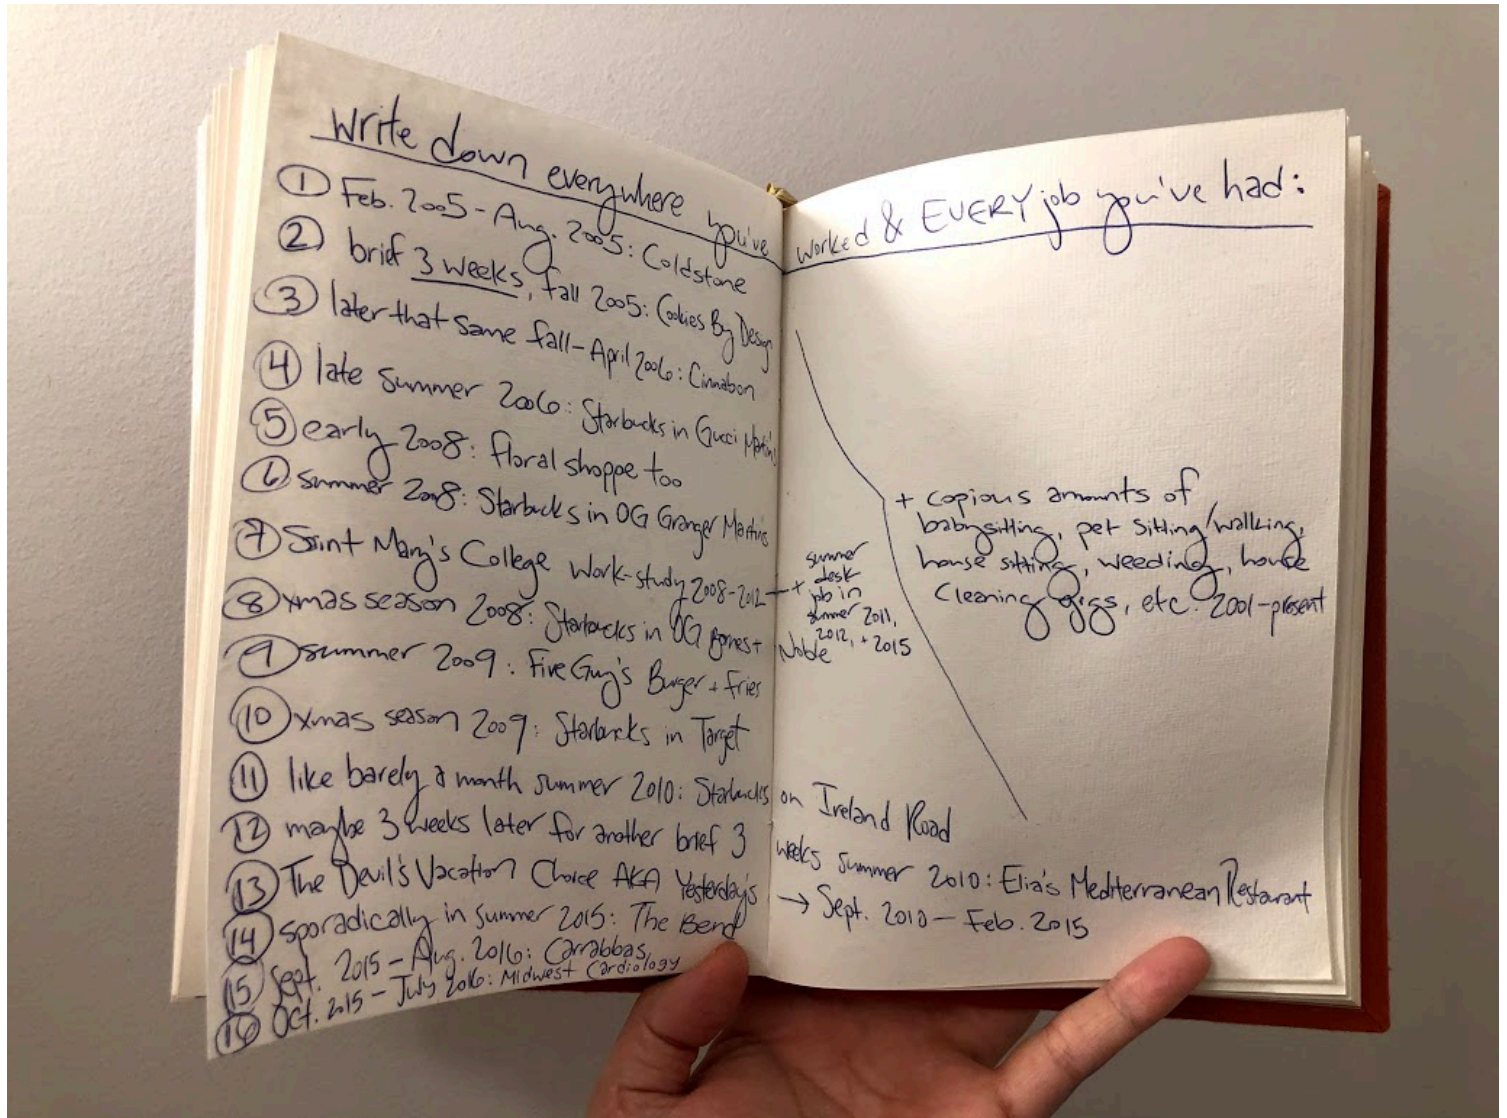 Write down everywhere you've worked & EVERY job you've had:
① Feb. 2005 - Aug. 2005: Coldstone
② brief 3 weeks, fall 2005: Cookies By Design
③ later that same fall - April 2006: Cinnabon
④ late summer 2006: Starbucks in Gucci Martin's
⑤ early 2008: floral shoppe too
⑥ summer 2008: Starbucks in OG Granger Martin's
⑦ Saint Mary's College work-study 2008-2012 → + summer
desk
job in
summer 2011,
2012, + 2015
⑧ xmas season 2008: Starbucks in OG Barnes + Noble
⑨ summer 2009: Five Guy's Burger + Fries
⑩ xmas season 2009: Starbucks in Target
⑪ like barely a month summer 2010: Starbucks on Ireland Road
⑫ maybe 3 weeks later for another brief 3 weeks summer 2010: Elia's Mediterranean Restaurant
⑬ The Devil's Vacation Choice AKA Yesterday's → Sept. 2010 - Feb. 2015
⑭ sporadically in summer 2015: The Bend
⑮ Sept. 2015 - Aug. 2016: Carrabbas
⑯ Oct. 2015 - July 2016: Midwest Cardiology
+ copious amounts of
babysitting, pet sitting/walking,
house sitting, weeding, house
cleaning gigs, etc. 2001-present